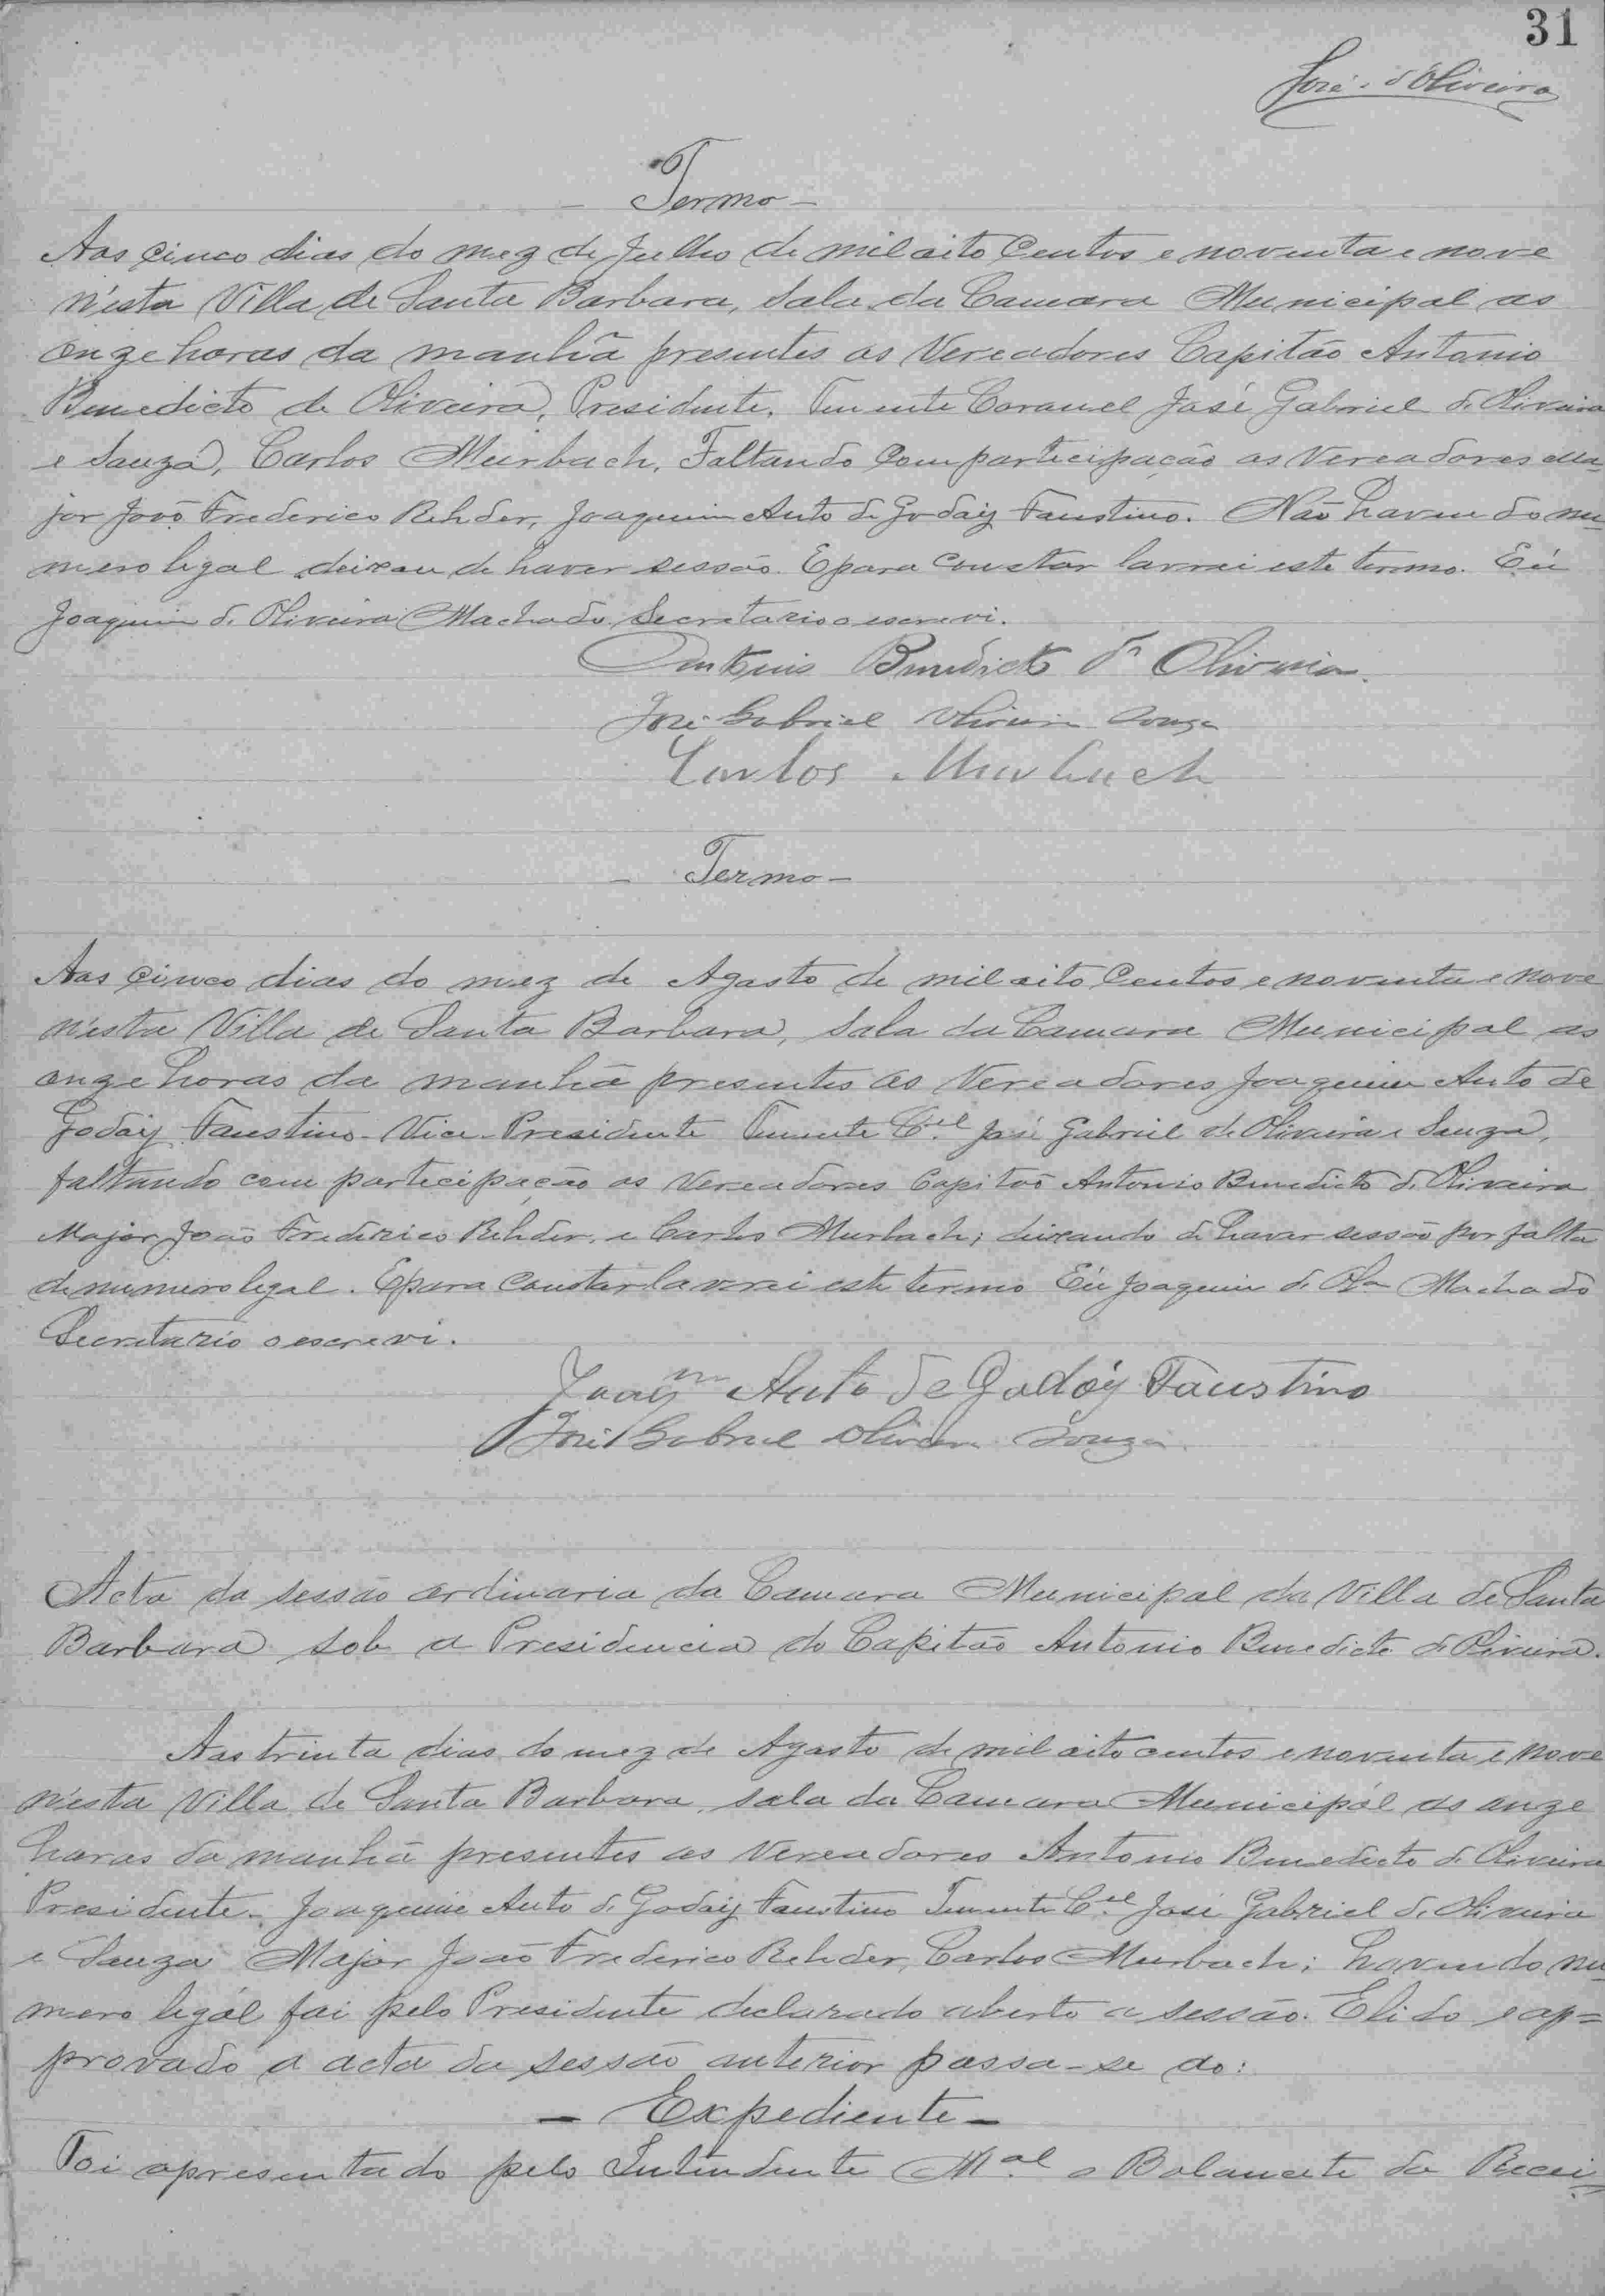 31
José d'Oliveira
- Termo -
Aos cinco dias do mez de Julho de mil oito centos e noventa e nove
n'esta Villa de Santa Barbara, Sala da Camara Municipal as
onze horas da manhã presentes os Vereadores Capitão Antonio
Benedicto de Oliveira, Presidente, Tenente Coronel José Gabriel de Oliveira
e Souza, Carlos Meirbach, Faltando com participação os Vereadores Ma-
jor João Frederico Rehder, Joaquim Auto de Godoy Faustino. Não havendo nu-
mero legal deixou de haver sessão. E para constar lavrei este termo. Eu
Joaquim de Oliveira Machado Secretario o escrevi.
Antonio Benedicto de Oliveira.
José Gabriel Oliveira Souza
Carlos Murbach
- Termo -
Aos cinco dias do mez de Agosto de mil oito centos e noventa e nove
n'esta Villa de Santa Barbara, Sala da Camara Municipal as
onze horas da manhã presentes os Vereadores Joaquim Auto de
Godoy Faustino - Vice-Presidente Tenente Cel José Gabriel de Oliveira e Souza,
faltando com participação os Vereadores Capitão Antonio Benedicto de Oliveira
Major João Frederico Rehder, e Carlos Murbach; deixando de haver sessão por falta
de numero legal. E para constar lavrei este termo Eu Joaquim de Olra Machado
Secretario o escrevi.
Joaqm Auto de Godóy Faustino
José Gabriel Oliveira Souza
Acta da sessão ordinaria da Camara Municipal da Villa de Santa
Barbara sob a Presidencia do Capitão Antonio Benedicto de Oliveira.
Aos trinta dias do mez de Agosto de mil oito centos e noventa e nove
n'esta Villa de Santa Barbara, sala da Camara Municipal as onze
horas da manhã presentes os Vereadores Antonio Benedicto de Oliveira
Presidente - Joaquim Auto de Godoy Faustino Tenente Cel José Gabriel de Oliveira
e Souza Major João Frederico Rehder, Carlos Murbach; havendo nu-
mero legal foi pelo Presidente declarado aberto a sessão. E lido e ap=
provado a acta da sessão anterior passa-se ao:
- Expediente -
Foi apresentado pelo Intendente Mal o Balancete da Recei-